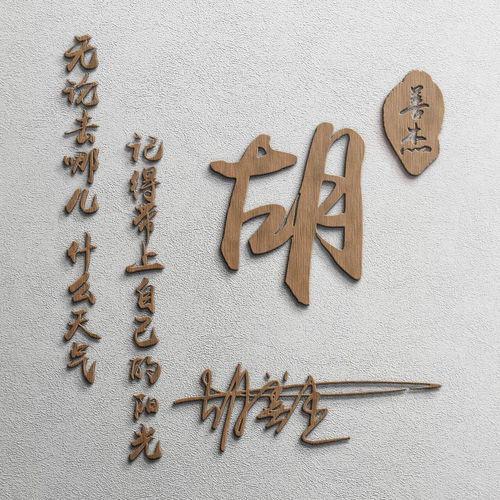 无论去哪儿 什么天气
记得带上自己的阳光
胡
善杰